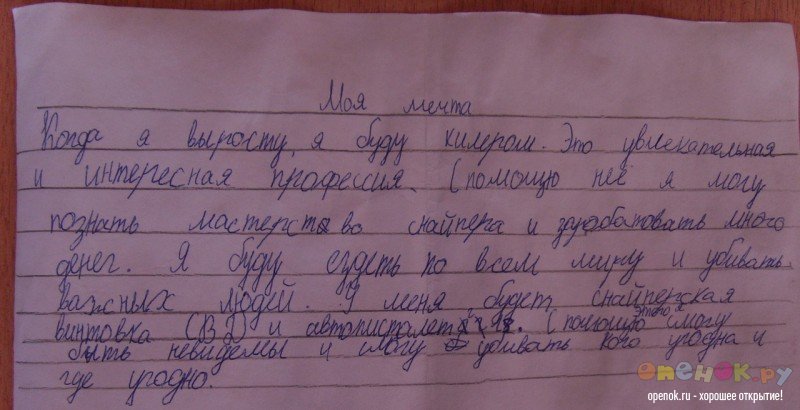 Моя мечта
Когда я вырасту, я буду килером. Это увлекательная
и интересная профессия. С помощю неё я могу
познать мастерство снайпера и зарабатовать много
денег. Я буду ездеть по всем миру и убивать
важных людей. У меня будет снайперская
винтовка (ВЗ) и автопистолет. С помощю этого я смогу
быть невидемы и смогу убивать кого угодна и
где угодно.
опенок.ру
openok.ru - хорошее открытие!